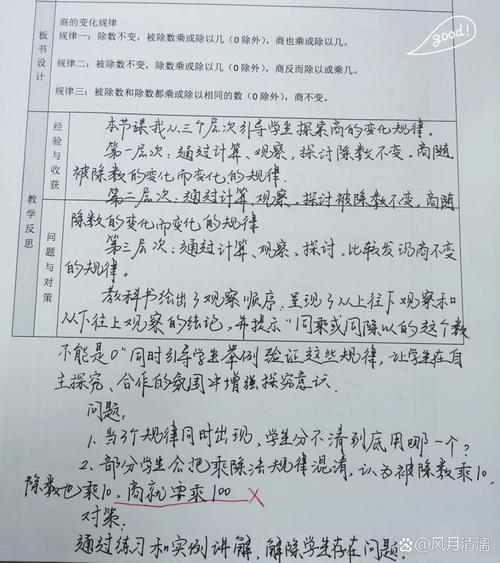 good!
板书设计
商的变化规律
规律一：除数不变，被除数乘或除以几（0除外），商也乘或除以几。
规律二：被除数不变，除数乘或除以几（0除外），商反而除以或乘几。
规律三：被除数和除数都乘或除以相同的数（0除外），商不变。
教学反思
经验与收获
本节课我从三个层次引导学生探索商的变化规律.
第一层次：通过计算、观察，探讨除数不变，商随
被除数的变化而变化的规律.
第二层次：通过计算观察，探讨被除数不变，商随
除数的变化而变化的规律
问题与对策
第三层次：通过计算、观察，探讨，比较发现商不变
的规律。
教科书给出了观察顺序，呈现了从上往下观察和
从下往上观察的结论，并提示“同乘或同除以的这个数
不能是0”同时引导学生举例验证这些规律，让学生在自
主探究、合作的氛围中增强探究意识.
问题：
1. 当3个规律同时出现，学生分不清到底用哪一个？
2. 部分学生会把乘除法规律混淆，认为被除数乘10，
除数也乘10，商就要乘100 ×
对策：
通过练习和实例讲解，解除学生存在问题.
Bai百度 @风月清漓